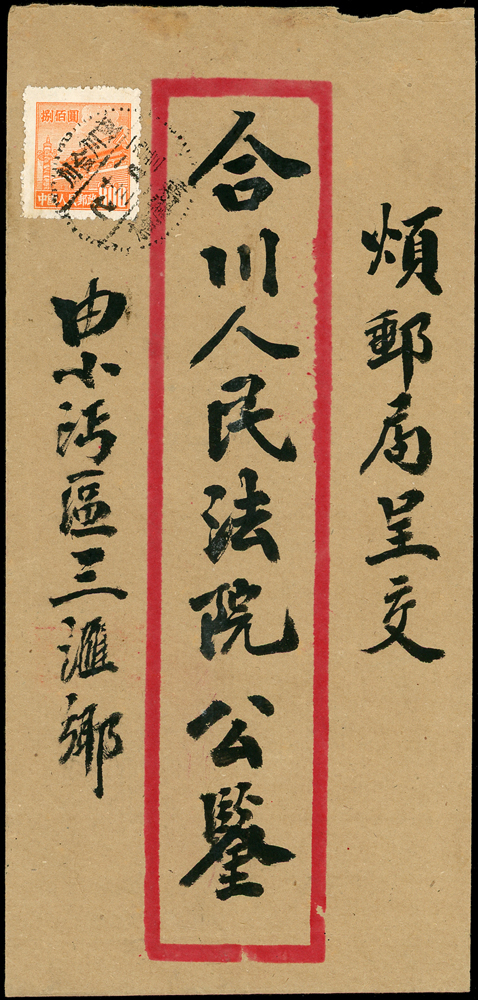 煩郵局呈交
合川人民法院公鑒
由小沔區三滙鄉
捌佰圓
中國人民郵政
800